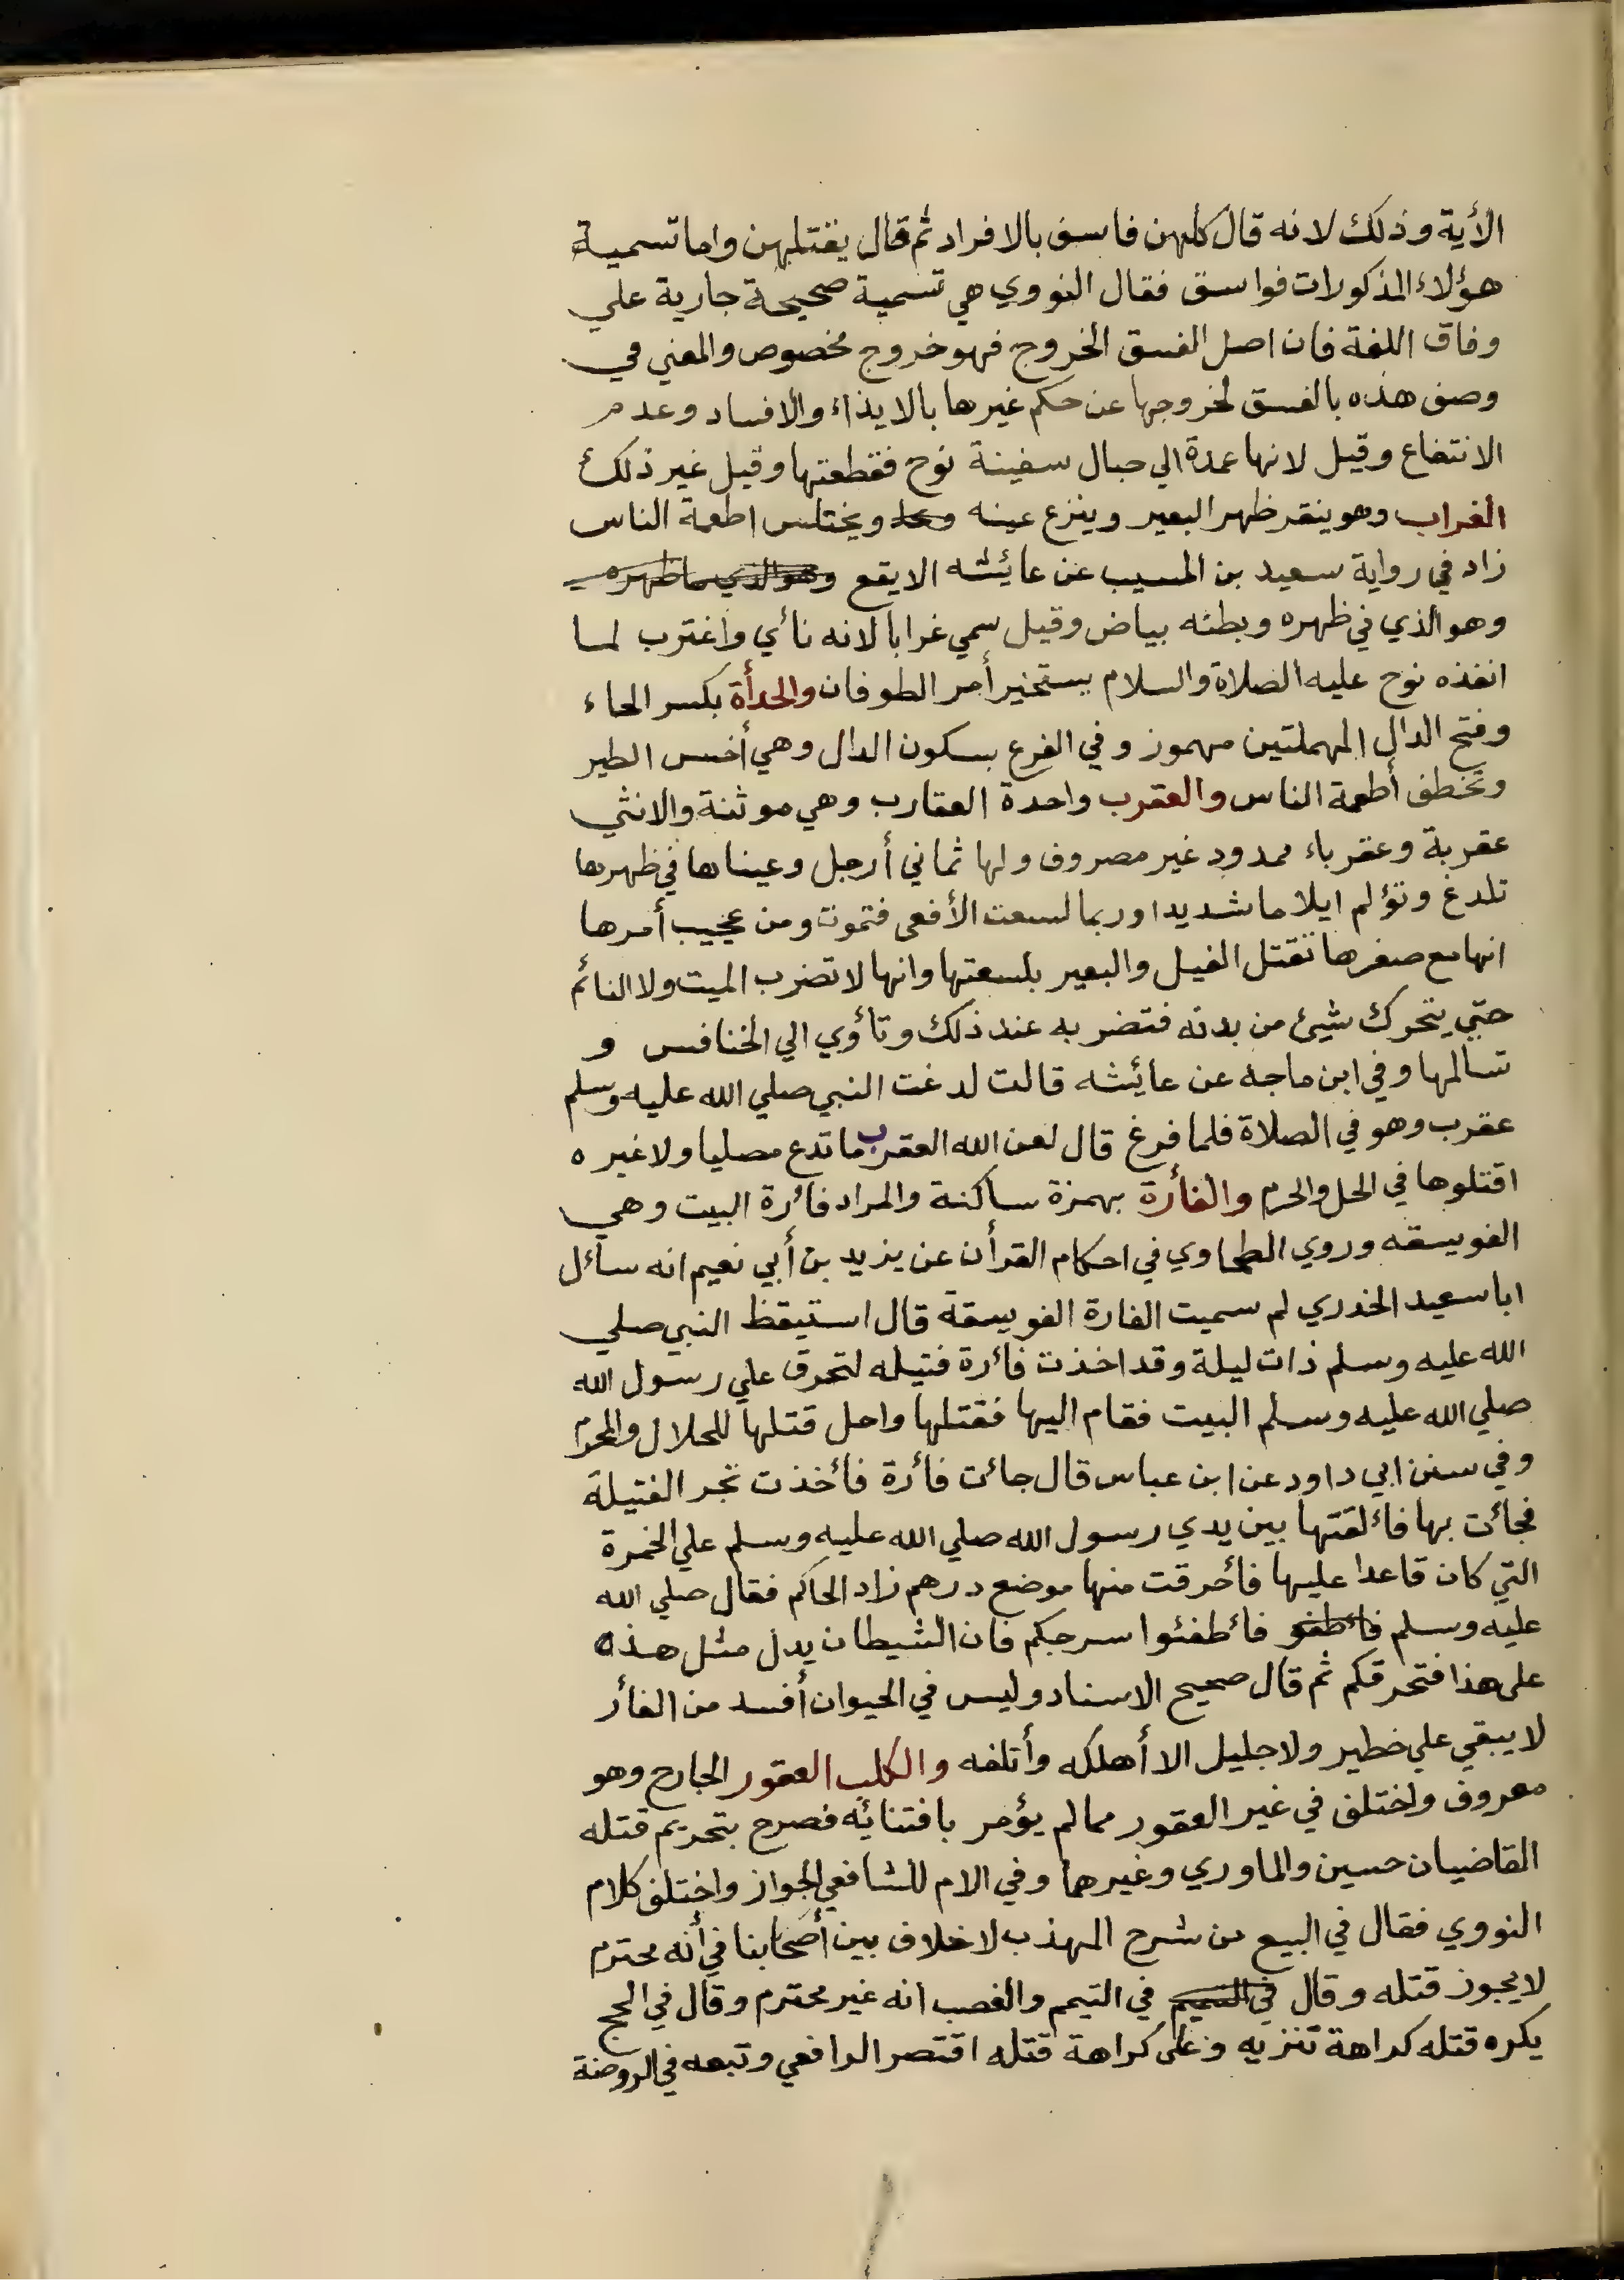 الأية وذلك لانه قال كلهن فاسق بالافراد ثم قال يقتلهن واما تسمية
هؤلاء المذكورات فواسق فقال النووي هي تسمية صحيحة جارية علي
وفاق اللغة فان اصل الفسق الخروج فهو خروج مخصوص والمعني في
وصف هذه بالفسق لخروجها عن حكم غيرها بالايذاء والافساد وعدم
الانتفاع وقيل لانها عمدة الي حبال سفينة نوح فقطعتها وقيل غير ذلك
الغراب وهو ينقر ظهر البعير وينزع عينه ويختلس اطعمة الناس
زاد في رواية سعيد بن المسيب عن عائشه الابقع وهو الذي ما ظهره
وهو الذي في ظهره وبطنه بياض وقيل سمي غرابا لانه نائي واغترب لما
انفذه نوح عليه الصلاة والسلام يستخير أمر الطوفان والحدأة بكسر الحاء
وفتح الدال المهملتين مهموز وفي الفرع بسكون الدال وهي أخس الطير
وتخطف أطعمة الناس والعقرب واحدة العقارب وهي موثنة والانثي
عقربة وعقرباء ممدود غير مصروف ولها ثماني أرجل وعيناها في ظهرها
تلدغ وتؤلم ايلاما شديدا وربما لسعت الأفعى فتموت ومن عجيب أمرها
انها مع صغرها تقتل الفيل والبعير بلسعتها وانها لا تضرب الميت ولا النائم
حتي يتحرك شيئ من بدنه فتضربه عند ذلك وتأوي الي الخنافس و
تسالمها وفي ابن ماجه عن عائشه قالت لدغت النبي صلي الله عليه وسلم
عقرب وهو في الصلاة فلما فرغ قال لعن الله العقرب ما تدع مصليا ولا غيره
اقتلوها في الحل والحرم والفأرة بهمزة ساكنة والمراد فائرة البيت وهي
الفويسقه وروي الطحاوي في احكام القرأن عن يزيد بن أبي نعيم انه سائل
ابا سعيد الخدري لم سميت الفارة الفويسقة قال استيقظ النبي صلي
الله عليه وسلم ذات ليلة وقد اخذت فائرة فتيله لتحرق علي رسول الله
صلي الله عليه وسلم البيت فقام اليها فقتلها واحل قتلها للحلال والمحرم
وفي سنن ابي داود عن ابن عباس قال جائت فأرة فأخذت تجر الفتيلة
فجائت بها فائلقتها بين يدي رسول الله صلي الله عليه وسلم علي الخمرة
التي كان قاعدا عليها فأحرقت منها موضع درهم زاد الحاكم فقال صلي الله
عليه وسلم فائطفو فائطفئوا سرجكم فان الشيطان يدل مثل هذه
على هذا فتحرقكم ثم قال صحيح الاسناد وليس في الحيوان أفسد من الفأر
لا يبقي علي خطير ولا جليل الا أهلكه وأتلفه والكلب العقور الجارح وهو
معروف واختلف في غير العقور مما لم يؤمر بافتنائه فصرح بتحريم قتله
القاضيان حسين والماوري وغيرهما وفي الام للشافعي الجواز واختلف كلام
النووي فقال في البيع من شرح المهذب لا خلاف بين أصحابنا في أنه محترم
لا يجوز قتله وقال في التيمم في التيمم والغصب انه غير محترم وقال في الحج
يكره قتله كراهة تنزيه وعلى كراهة قتله اقتصر الرافعي وتبعه في الروضة